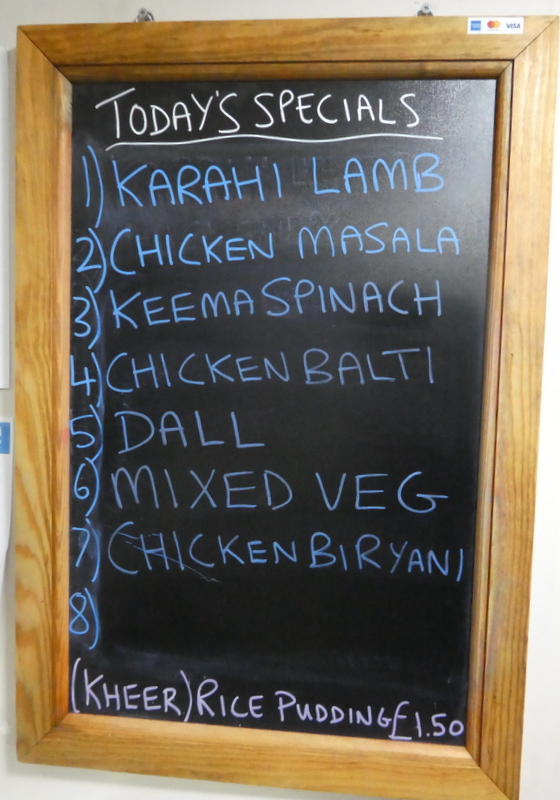 VISA
TODAY'S SPECIALS
1) KARAHI LAMB
2) CHICKEN MASALA
3) KEEMA SPINACH
4) CHICKEN BALTI
5) DALL
6) MIXED VEG
7) CHICKEN BIRYANI
8)
(KHEER) RICE PUDDING £1.50